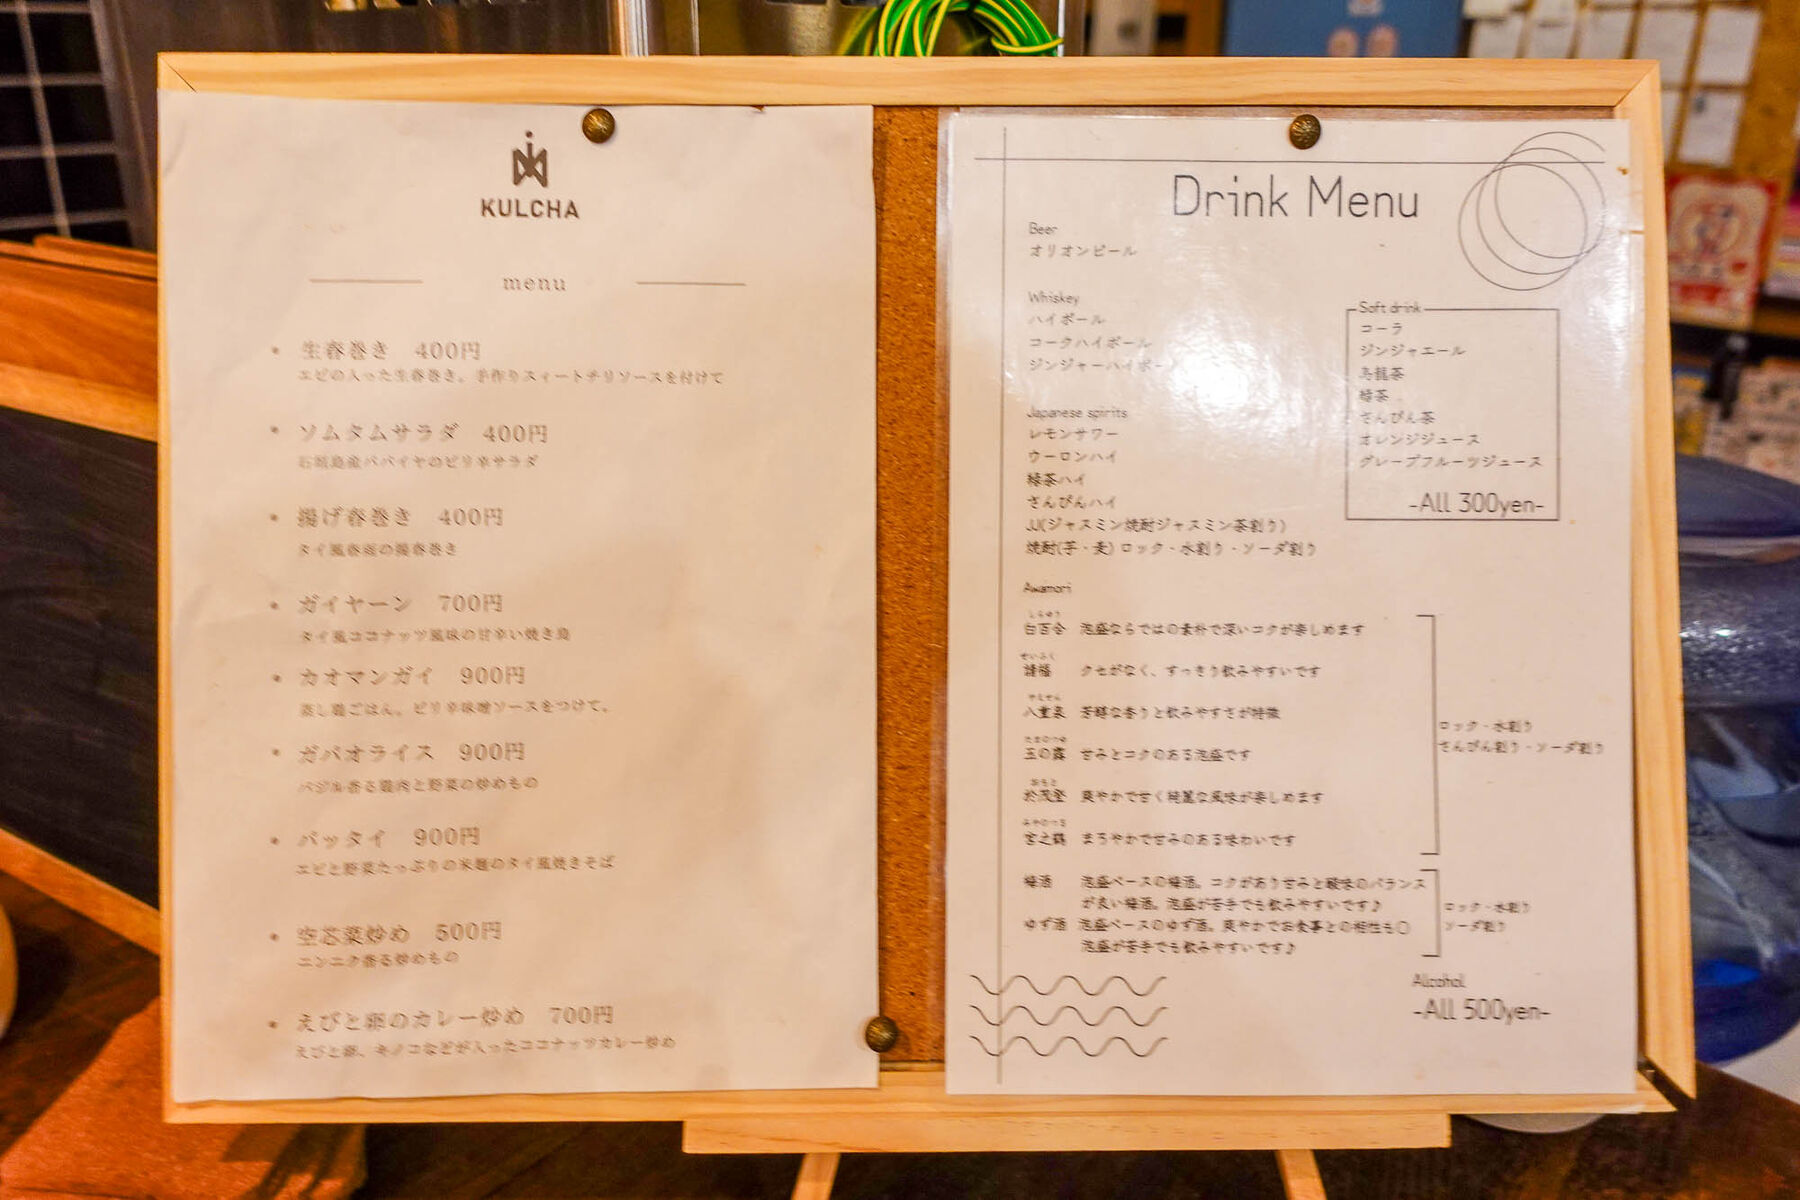 KULCHA
menu
• 生春巻き 400円
エビの入った生春巻き。手作りスィートチリソースを付けて
• ソムタムサラダ 400円
石垣島産パパイヤのピリ辛サラダ
• 揚げ春巻き 400円
タイ風春雨の揚春巻き
• ガイヤーン 700円
タイ風ココナッツ風味の甘辛い焼き鳥
• カオマンガイ 900円
蒸し鶏ごはん。ピリ辛味噌ソースをつけて。
• ガパオライス 900円
バジル香る鶏肉と野菜の炒めもの
• パッタイ 900円
エビと野菜たっぷりの米麺のタイ風焼きそば
• 空芯菜炒め 500円
ニンニク香る炒めもの
• えびと卵のカレー炒め 700円
えびと卵、キノコなどが入ったココナッツカレー炒め
Drink Menu
Beer
オリオンビール
Whiskey
ハイボール
コークハイボール
ジンジャーハイボー
Japanese spirits
レモンサワー
ウーロンハイ
緑茶ハイ
さんぴんハイ
JJ(ジャスミン焼酎ジャスミン茶割り)
焼酎(芋・麦) ロック・水割り・ソーダ割り
Soft drink
コーラ
ジンジャエール
烏龍茶
緑茶
さんぴん茶
オレンジジュース
グレープフルーツジュース
-All 300yen-
Awamori
しらゆり
白百合 泡盛ならではの素朴で深いコクが楽しめます
せいふく
請福 クセがなく、すっきり飲みやすいです
やえせん
八重泉 芳醇な香りと飲みやすさが特徴
たまのつゆ
玉の露 甘みとコクのある泡盛です
おもと
於茂登 爽やかで甘く綺麗な風味が楽しめます
みやのつる
宮之鶴 まろやかで甘みのある味わいです
ロック・水割り
さんぴん割り・ソーダ割り
梅酒 泡盛ベースの梅酒。コクがあり甘みと酸味のバランス
が良い梅酒。泡盛が苦手でも飲みやすいです♪
ゆず酒 泡盛ベースのゆず酒。爽やかでお食事との相性も〇
泡盛が苦手でも飲みやすいです♪
ロック・水割り
ソーダ割り
Alcohol
-All 500yen-